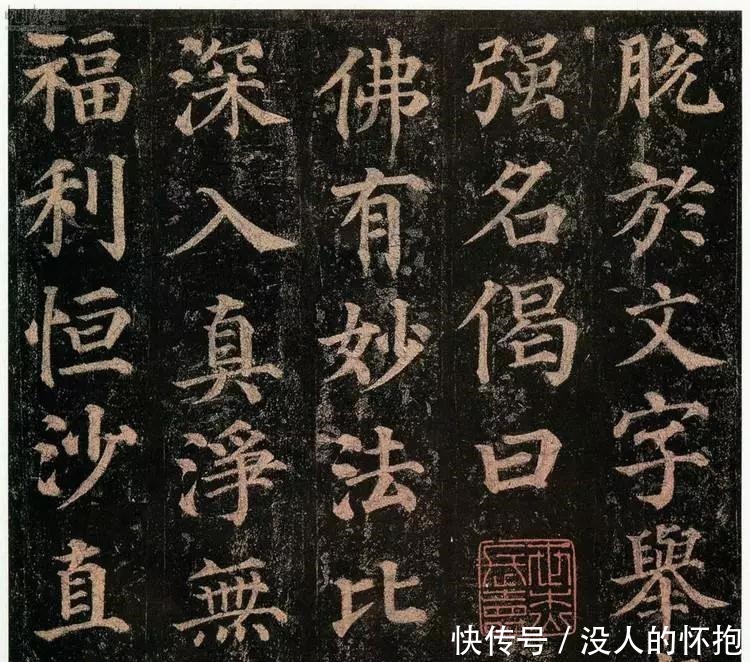 脱於文字舉
强名偈曰
佛有妙法比
深入真淨無
福利恒沙直
快传号 / 没人的怀抱